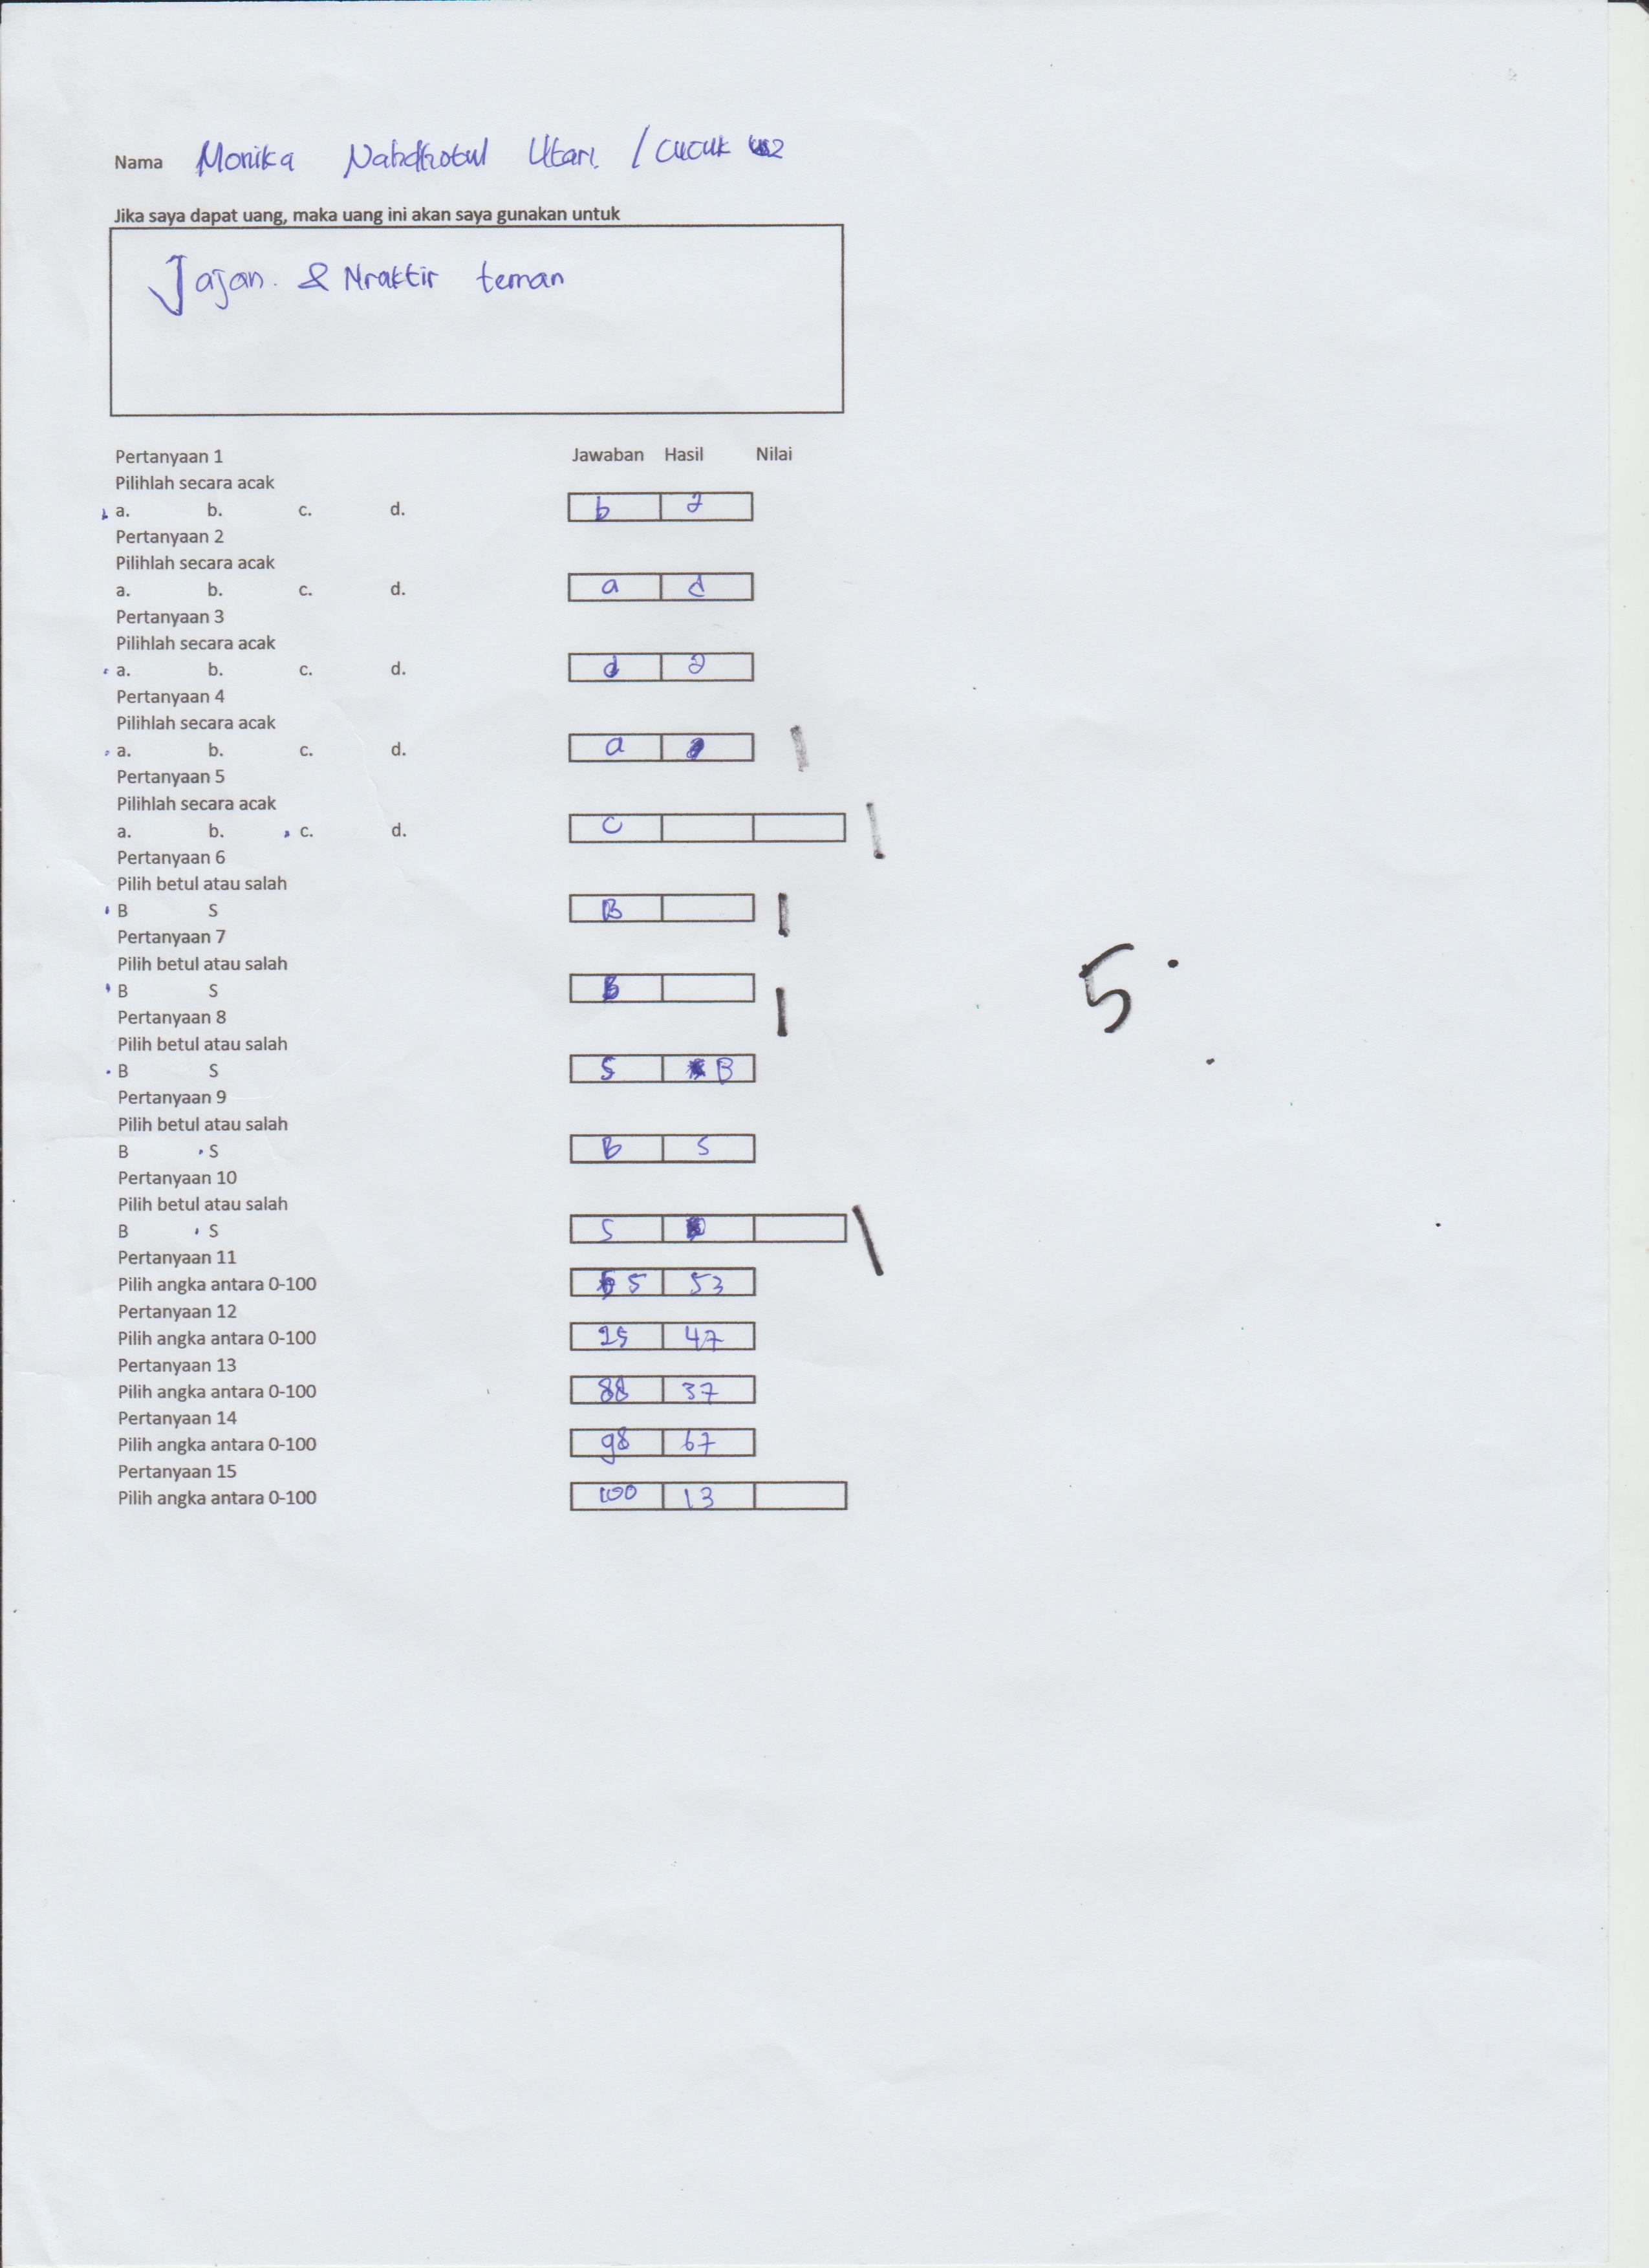 Nama Monika Nahdhotul Utari. / cucuk
Jika saya dapat uang, maka uang ini akan saya gunakan untuk
Jajan. & Nraktir teman
Pertanyaan 1 Jawaban Hasil Nilai
Pilihlah secara acak
a. b. c. d. b a
Pertanyaan 2
Pilihlah secara acak
a. b. c. d. a d
Pertanyaan 3
Pilihlah secara acak
a. b. c. d. d a
Pertanyaan 4
Pilihlah secara acak
a. b. c. d. a
Pertanyaan 5
Pilihlah secara acak
a. b. c. d. C
Pertanyaan 6
Pilih betul atau salah
B S B
Pertanyaan 7
Pilih betul atau salah
B S B
Pertanyaan 8
Pilih betul atau salah
B S S B
Pertanyaan 9
Pilih betul atau salah
B S B S
Pertanyaan 10
Pilih betul atau salah
B S S
Pertanyaan 11
Pilih angka antara 0-100 5 53
Pertanyaan 12
Pilih angka antara 0-100 25 47
Pertanyaan 13
Pilih angka antara 0-100 88 37
Pertanyaan 14
Pilih angka antara 0-100 98 67
Pertanyaan 15
Pilih angka antara 0-100 100 13
5